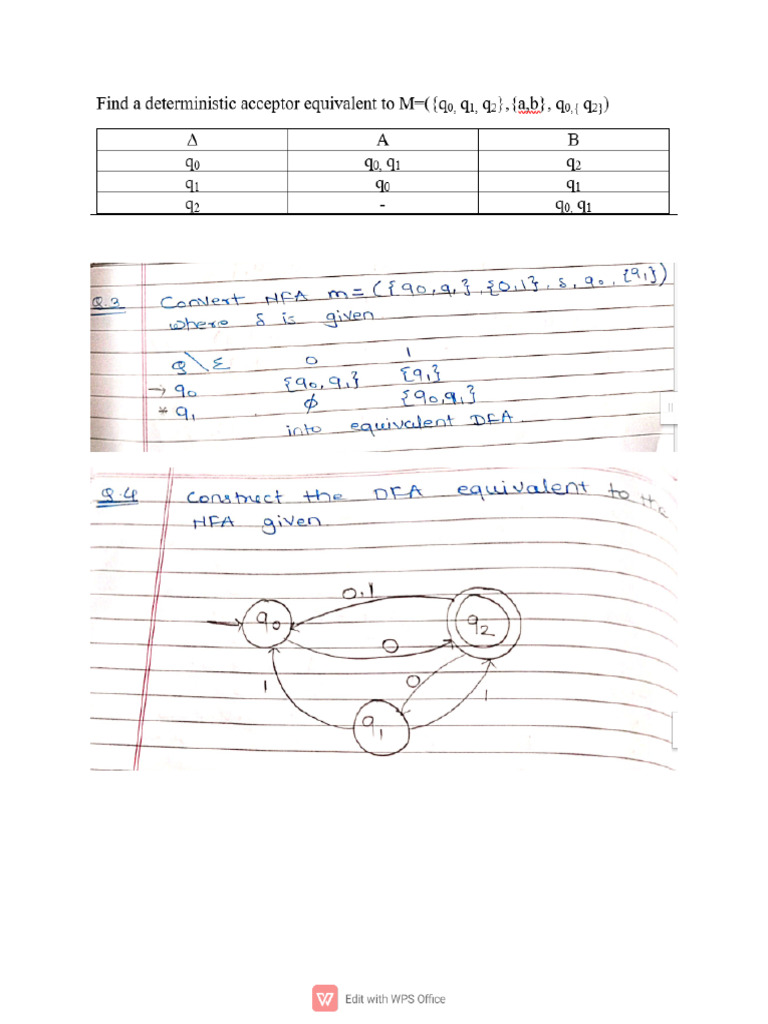 Find a deterministic acceptor equivalent to M=({q0, q1, q2},{a,b}, q0,{ q2})
Δ A B
q0 q0, q1 q2
q1 q0 q1
q2 - q0, q1
Q.3 Convert NFA m = ({q0, q1}, {0,1}, δ, q0, {q1})
where δ is given
Q\Σ 0 1
→ q0 {q0, q1} {q1}
* q1 ϕ {q0, q1}
into equivalent DFA.
Q.4 Construct the DFA equivalent to the
NFA given
0,1
q0
q2
0
0
1
1
q1
W Edit with WPS Office